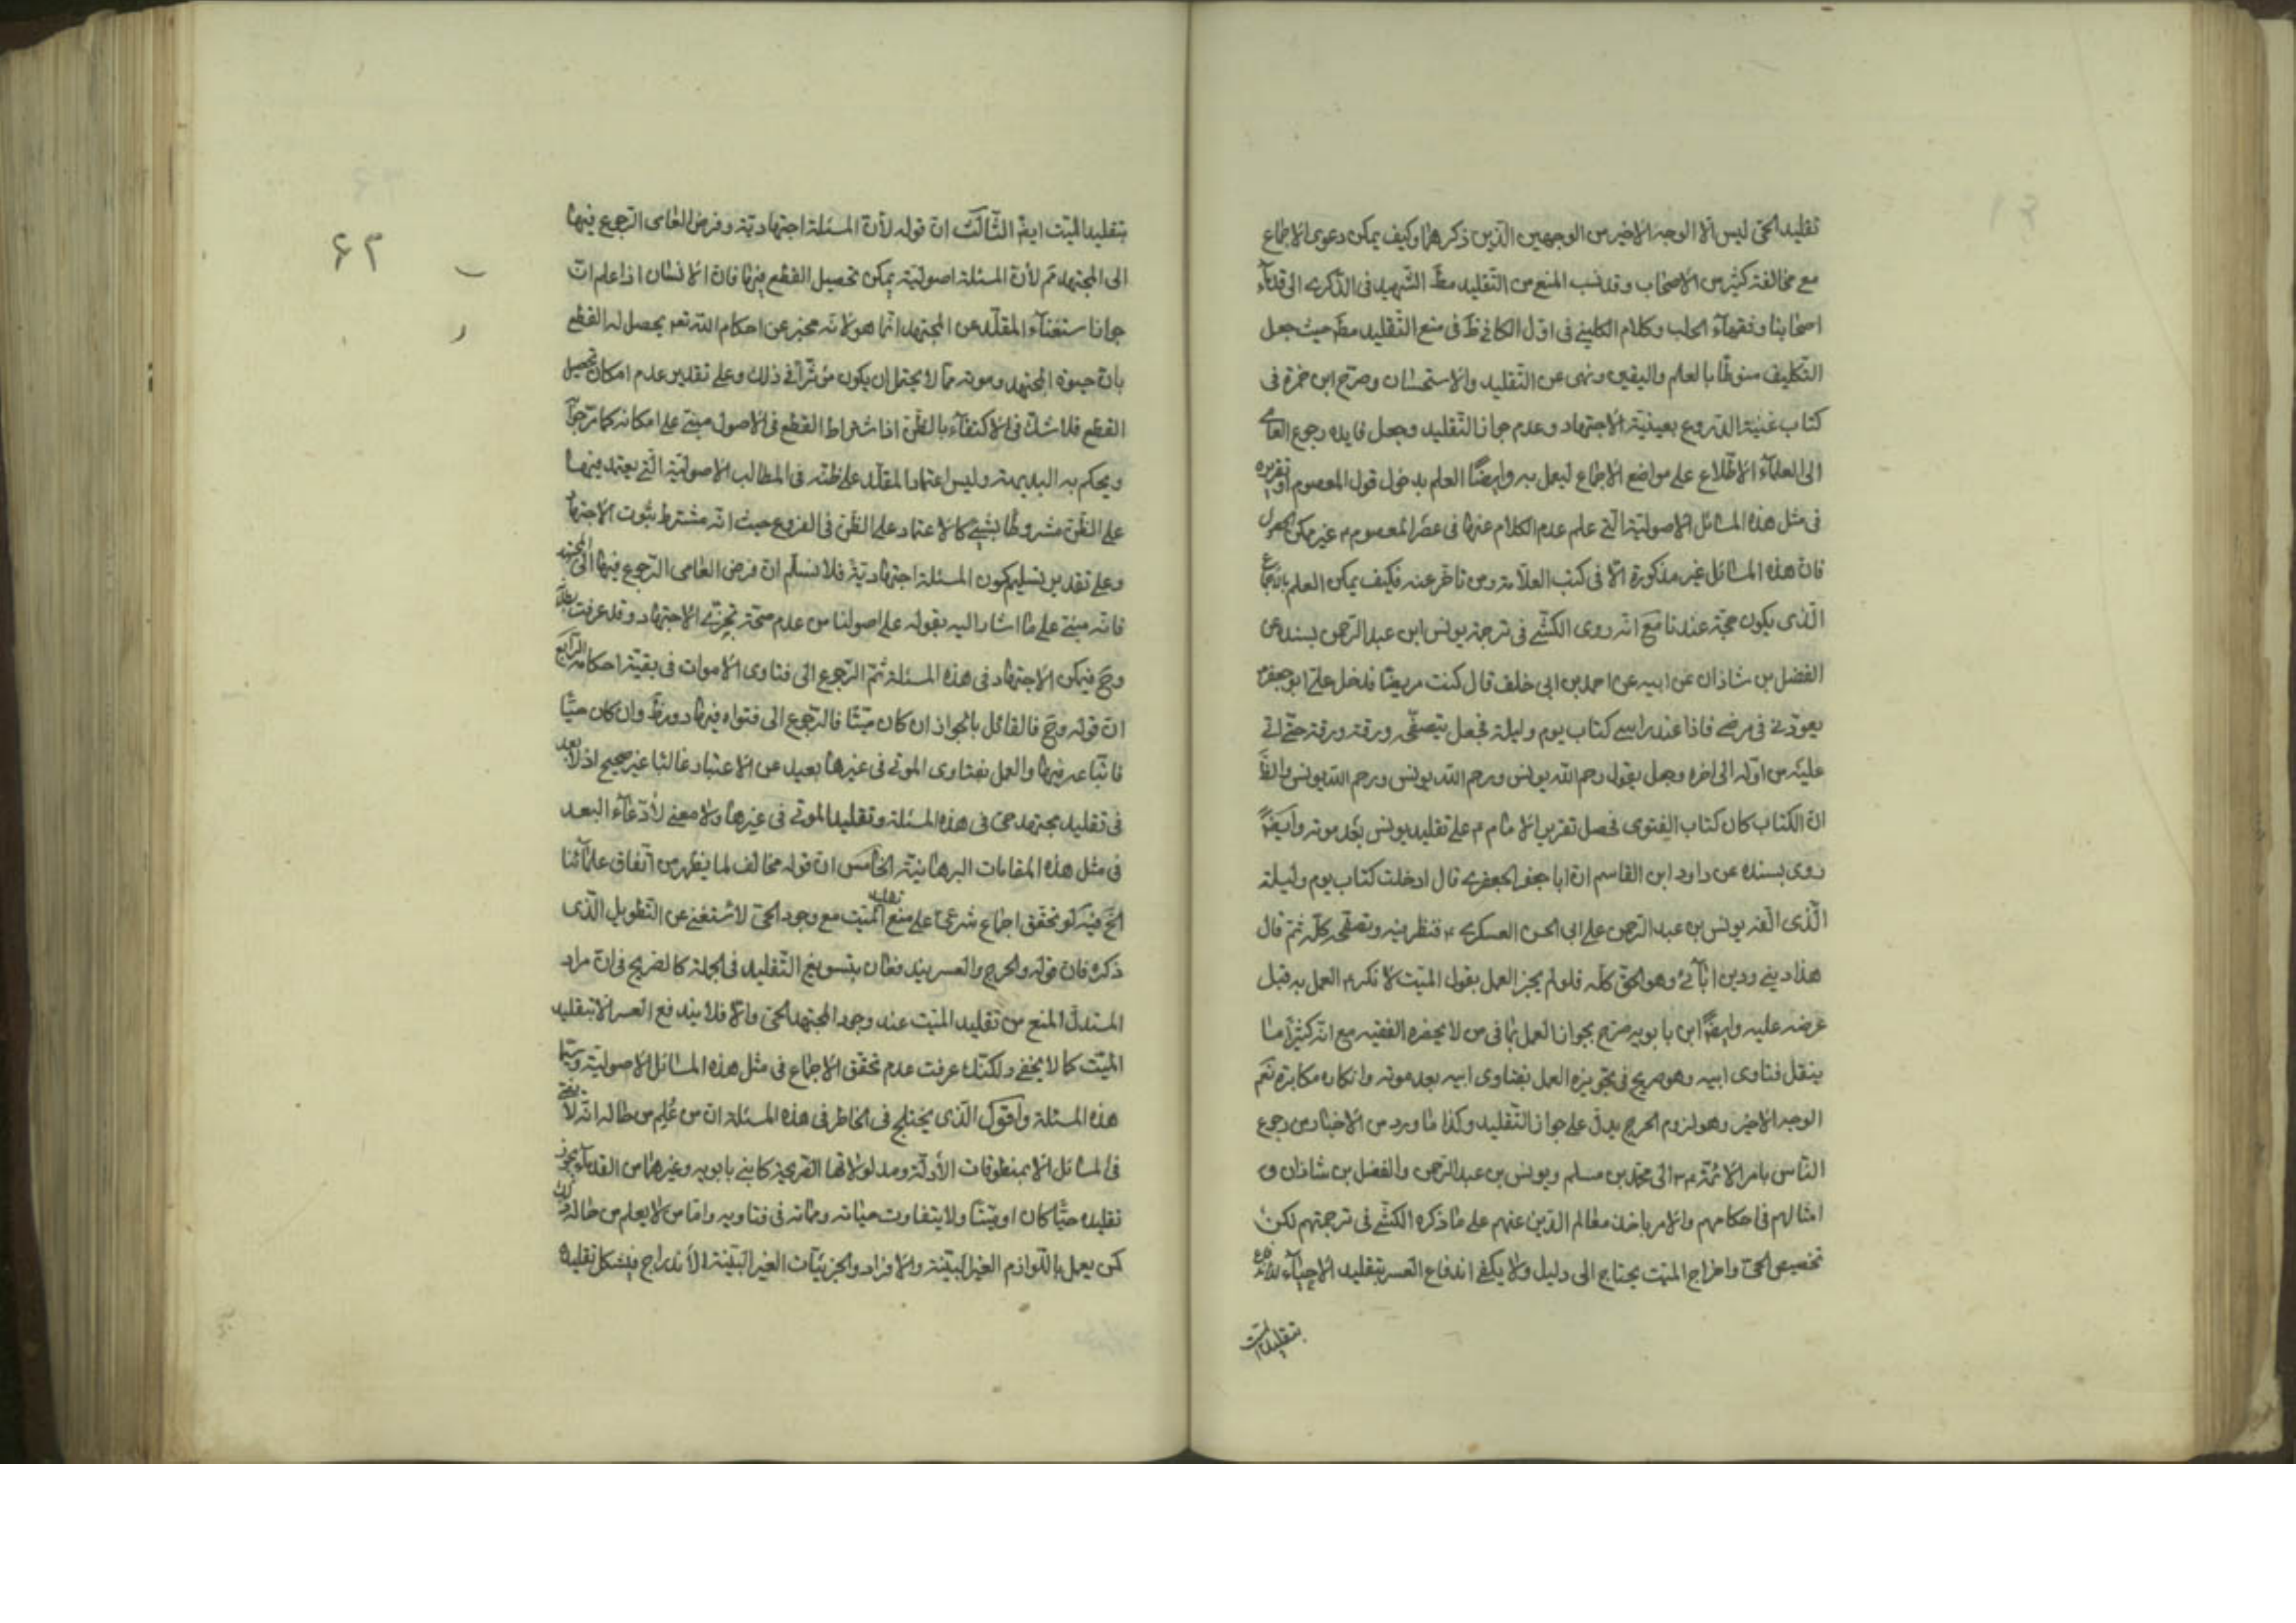 تقليد الحى ليس الا الوجه الاخير من الوجهين الذين ذكرهما وكيف يمكن دعوى الاجماع
مع مخالفة كثير من الاصحاب وقد نسب المنع من التقليد مط الشهيد فى الذكرى الى قدماء
اصحابنا وفقهاء الحلب وكلام الكلينى فى اول الكافى ظ فى منع التقليد مط حيث جعل
التكليف منوطا بالعلم واليقين ونهى عن التقليد والاستحسان وصرح ابن حمزة فى
كتاب غنية النزوع بعينية الاجتهاد وعدم جواز التقليد وجعل فايده رجوع العامى
الى العلماء الاطلاع على مواضع الاجماع ليعمل به وايضا العلم بدخول قول المعصوم او تقريره
فى مثل هذه المسائل الاصولية التى علم عدم الكلام عنها فى عصر المعصوم م غير ممكن الحصول
فان هذه المسائل غير مذكورة الا فى كتب العلامة ومن تاخر عنه فكيف يمكن العلم بالاجماع
الذى يكون حجة عندنا مع انه روى الكشى فى ترجمة يونس ابن عبد الرحمن بسنده عن
الفضل بن شاذان عن ابيه عن احمد بن ابى خلف قال كنت مريضا فدخل على ابو جعفر
يعودنى فى مرضى فاذا عند راسى كتاب يوم وليلة فجعل يتصفحه ورقة ورقة حتى اتى
عليه من اوله الى اخره وجعل يقول رحم الله يونس ورحم الله يونس ورحم الله يونس والظ
ان الكتاب كان كتاب الفتوى فحصل تقرير الامام م على تقليد يونس بعد موته وايضا
روى بسنده عن داود ابن القاسم ان ابا جعفر الجعفرى قال ادخلت كتاب يوم وليلة
الذى الفه يونس بن عبد الرحمن على ابى الحسن العسكرى ع فنظر فيه وتصفحه كله ثم قال
هذا دينى ودين ابائى وهو الحق كله فلو لم يجز العمل بقول الميت لانكر م العمل به قبل
عرضه عليه وايضا ابن بابويه صرح بجواز العمل بما فى من لا يحضره الفقيه مع انه كثيرا ما
ينقل فتاوى ابيه وهو صريح فى تجويزه العمل بفتاوى ابيه بعد موته وانكاره مكابرة نعم
الوجه الاخير وهو لزوم الحرج يدل على جواز التقليد وكذا ما ورد من الاخبار من رجوع
الناس بامر الائمة ع م الى محمد بن مسلم ويونس بن عبد الرحمن والفضل بن شاذان و
امثالهم فى احكامهم والامر باخذ معالم الدين عنهم على ما ذكره الكشى فى ترجمتهم لكن
تخصيص الحى واخراج الميت يحتاج الى دليل ولا يكفى اندفاع العسر بتقليد الاحياء
بتقليد الميت
۶۳
بتقليد الميت ايضا الثالث ان قوله لان المسئلة اجتهادية وفرض العامى الرجوع فيها
الى المجتهد لأن المسئلة اصولية يمكن تحصيل القطع فيها فان الانسان اذا علم ان
جواز استفتاء المقلد عن المجتهد انما هو لانه مخبر عن احكام الله تعه يحصل له القطع
بان حيوة المجتهد وموته مما لا يحتمل ان يكون مؤثرا فى ذلك وعلى تقدير عدم امكان تحصيل
القطع فلا شك فى الاكتفاء بالظن اذ اشتراط القطع فى الاصول مبنى على امكانه كما مر
ويحكم به البديهة وليس اعتماد المقلد على ظنه فى المطالب الاصولية التى يعتمد فيها
على الظن مشروطا بشئ كالاعتماد على الظن فى الفروع حيث انه مشترط بثبوت الاجتهاد
وعلى تقدير تسليم كون المسئلة اجتهادية فلا نسلم ان فرض العامى الرجوع فيها الى المجتهد
فانه مبنى على ما اشار اليه بقوله على اصولنا من عدم صحة تجزئ الاجتهاد وقد عرفت
وح فيمكن الاجتهاد فى هذه المسئلة ثم الرجوع الى فتاوى الاموات فى بقية احكامه الرابع
ان قوله وح فالقائل بالجواز ان كان ميتا فالرجوع الى فتواه فيها دور ظ وان كان حيا
فاتباعه فيها والعمل بفتاوى الموتى فى غيرها بعيد عن الاعتبار غالبا غير صحيح اذ لا بعد
فى تقليد مجتهد حى فى هذه المسئلة وتقليد الموتى فى غيرها ولا معنى لادعاء البعد
فى مثل هذه المقامات البرهانية الخامس ان قوله مخالف لما يظهر من اتفاق علمائنا
الخ فيه لو تحقق اجماع شرعى على منع تقليد الميت مع وجود الحى لاستغنى عن التطويل الذى
ذكره فان قوله والحرج والعسر يندفعان بتسويغ التقليد فى الجملة كالصريح فى ان مراد
المستدل المنع من تقليد الميت عند وجود المجتهد الحى والا فلا يندفع العسر الا بتقليد
الميت كما لا يخفى ولكنك عرفت عدم تحقق الاجماع فى مثل هذه المسائل الاصولية وسيما
هذه المسئلة واقول الذى يختلج فى الخاطر فى هذه المسئلة ان من علم من حاله انه لا يفتى
فى المسائل الا بمنطوقات الأدلة ومدلولاتها الصريحة كابنى بابويه وغيرهما من القدماء يجوز
تقليده حيا كان او ميتا ولا يتفاوت حياته ومماته فى فتاويه واما من لا يعلم من حاله ذلك
كمن يعمل باللوازم الغير البينة والافراد والجزئيات الغير البينة الاندراج فيشكل تقليده